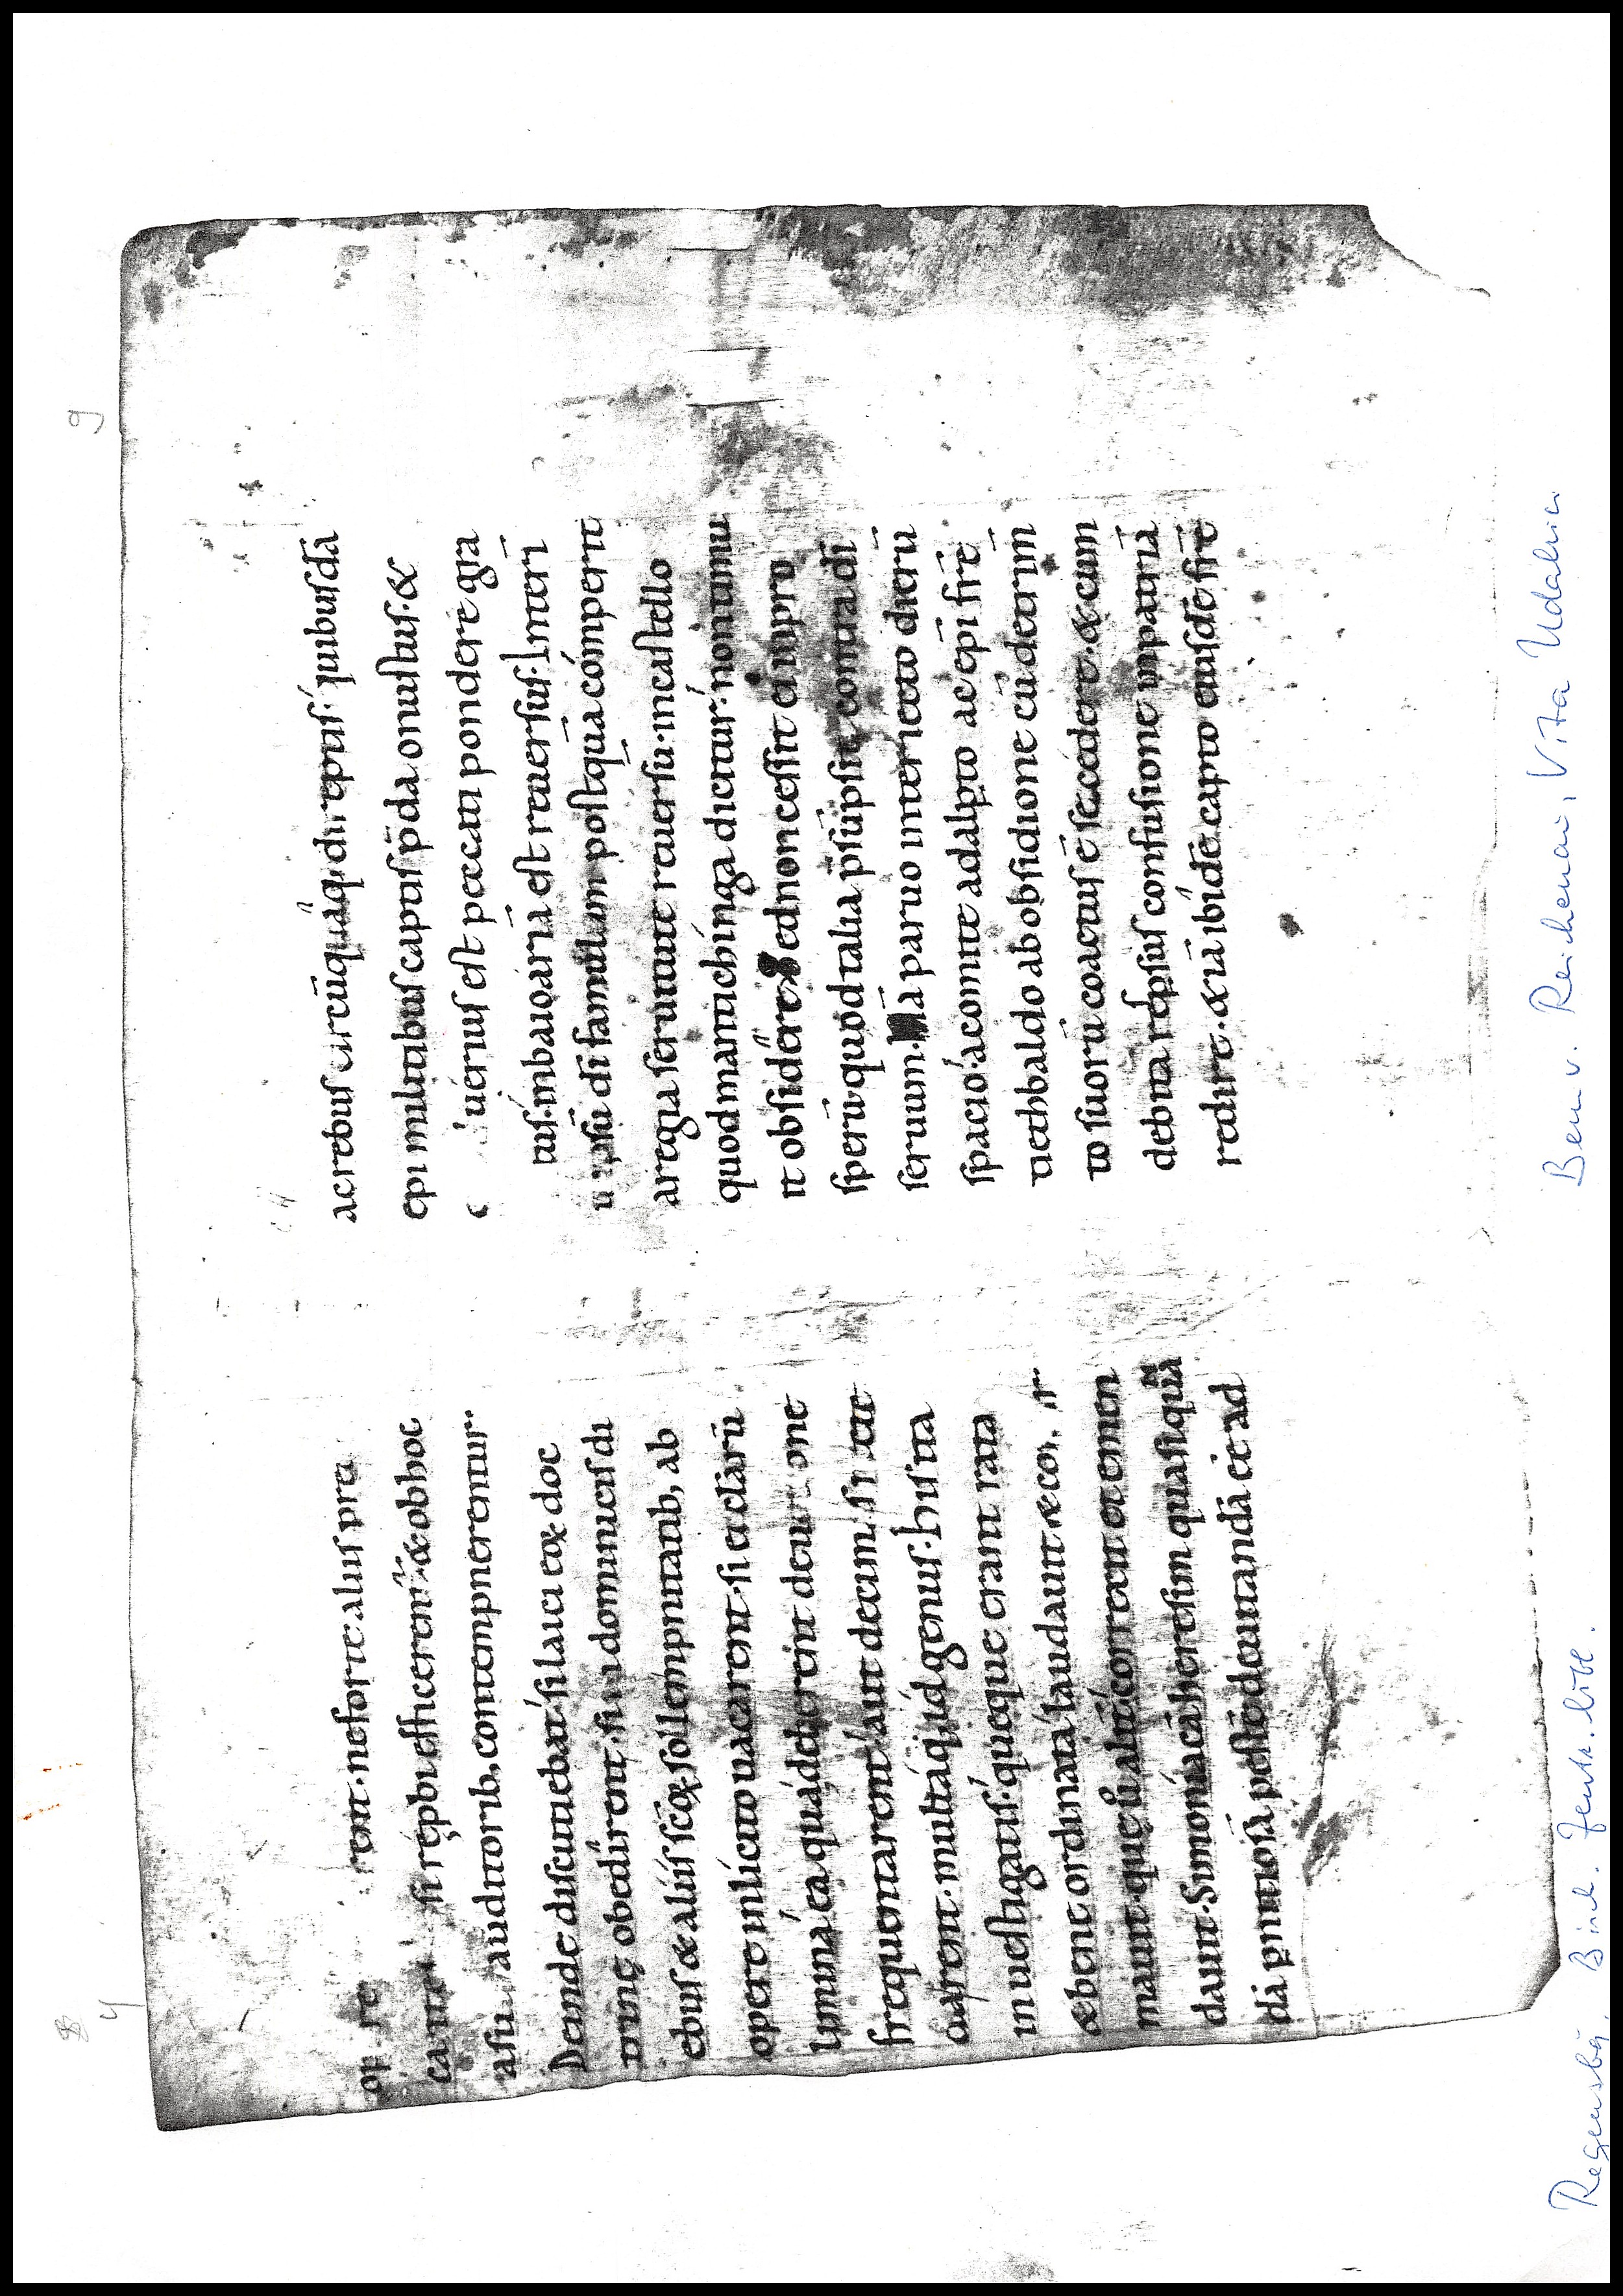 or re rent. ne forte aliis pre
cante si repbi efficerent́. & ob hoc
a sui auditorib, contempnerentur.
Deinde discutiebat́ si laici eoꝝ doc
trinę obedirent. si in dominicis di
ebus & aliis sc̄oꝝ sollempnitatib, ab
opere inlicito uacarent. si ecclarū
limina ea qua deberent deuotione
frequentarent́ aut decimas recte
darent. multaq, id genus. his ita
inuestigatis. queque erant rata
& bene ordinatá laudauit & con
mauit. quę u̓ aliť́ correxit et emen
dauit. Simoniacā heresim quasi quan
dā pitiosā pestē deuitandā eē ad
acrebus circūquáq, direptis. quibusdā
epi militabus captis p̄da onustus. &
uerius est peccati pondere gra
tus. in baioáriā est reuersus. Interī
u asū dī famulum postquā comperit
a regia seruitute reuersū. in castello
quod mantichinga dicitur. non timu
it obsidere. Sed non cessit ei in pro
sperū quod talia p̄sūpsit contra dī
seruum. Nā paruo interiecto dierū
spacio. a comite adalpto ac epī fr̄e
tietbaldo ab obsidione cū detrim
to suorū coactus ē secedere. & cum
debita ipsius confusione in patriā
redire. & iā ibidē capto eiusdē fr̄e
8
4
9
Regensbg. Bisch. Zentr. bibl.
Bern v. Reichenau, Vita Udalrici